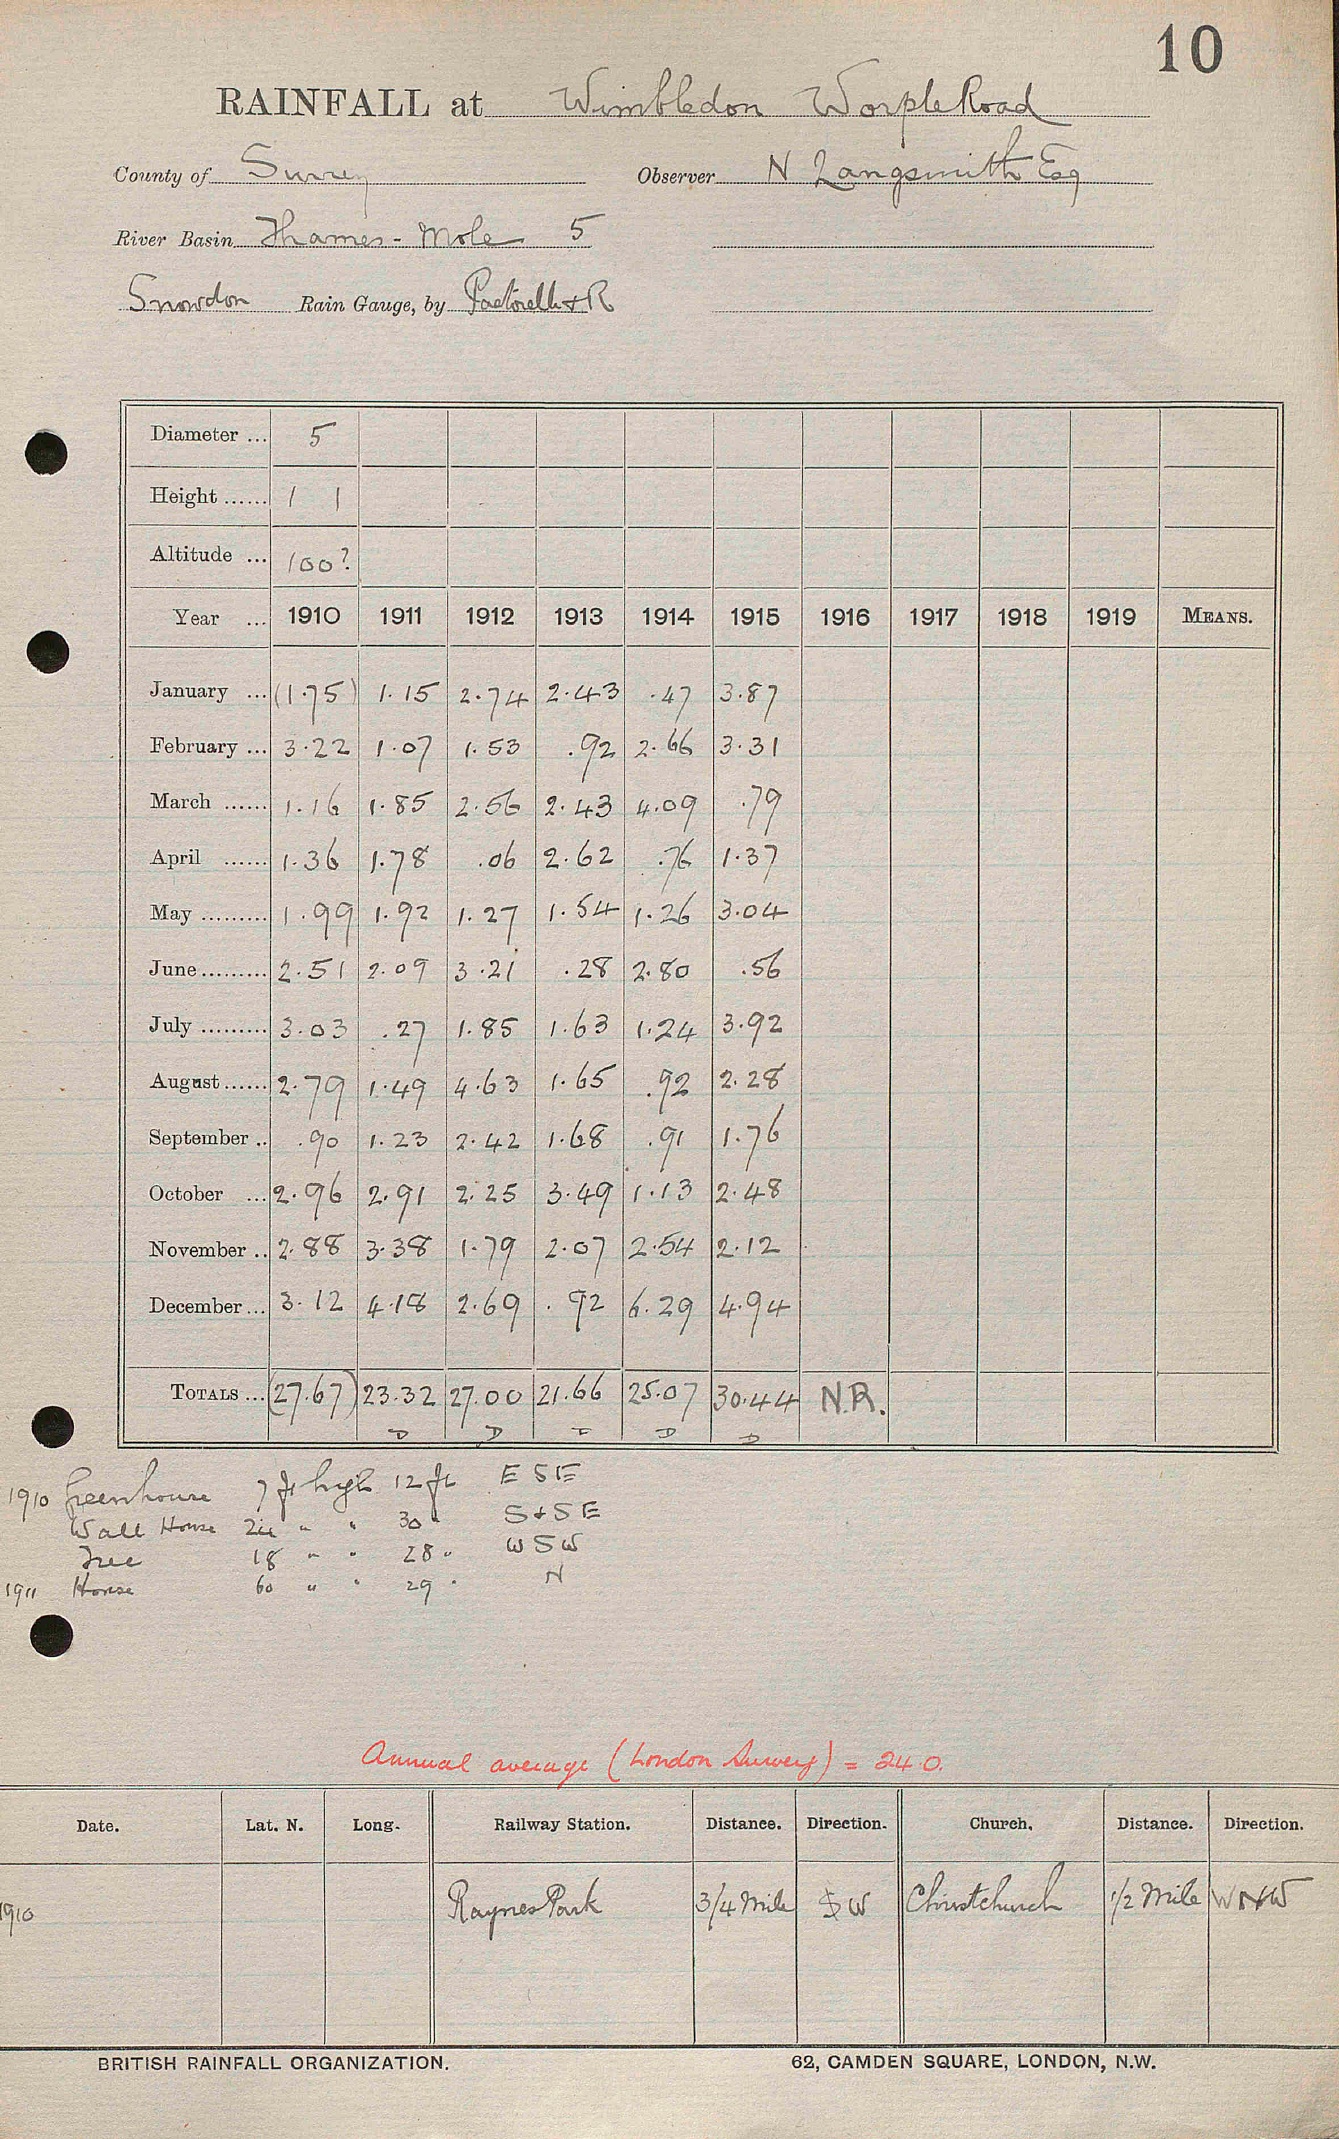 10
RAINFALL at Wimbledon Worple Road
County of Surrey Observer N Langsmith Esq
River Basin Thames - Mole 5
Snowdon Rain Gauge, by Pastorelli & R
Diameter ... 5
Height ...... 1 1
Altitude ... 100?
Year ... 1910 1911 1912 1913 1914 1915 1916 1917 1918 1919 MEANS.
January ... (1.75) 1.15 2.74 2.43 .47 3.87
February ... 3.22 1.07 1.53 .92 2.66 3.31
March ...... 1.16 1.85 2.56 2.43 4.09 .79
April ...... 1.36 1.78 .06 2.62 .76 1.37
May ......... 1.99 1.92 1.27 1.54 1.26 3.04
June ......... 2.51 2.09 3.21 .28 2.80 .56
July ......... 3.03 .27 1.85 1.63 1.24 3.92
August ...... 2.79 1.49 4.63 1.65 .92 2.28
September .. .90 1.23 2.42 1.68 .91 1.76
October ... 2.96 2.91 2.25 3.49 1.13 2.48
November .. 2.88 3.38 1.79 2.07 2.54 2.12
December ... 3.12 4.18 2.69 .92 6.29 4.94
TOTALS ... (27.67) 23.32 27.00 21.66 25.07 30.44 N.R.
D D D D D
1910 Greenhouse 7 ft high 12 ft E S E
Wall House 24 " " 30 " S & S E
Tree 18 " " 28 " W S W
1911 House 60 " " 29 " N
Annual average (London Survey) = 24.0.
Date. Lat. N. Long. Railway Station. Distance. Direction. Church. Distance. Direction.
1910 Raynes Park 3/4 Mile SW Christchurch 1/2 Mile WNW
BRITISH RAINFALL ORGANIZATION. 62, CAMDEN SQUARE, LONDON, N.W.